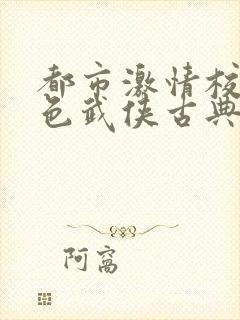 都市激情校
色武侠古典
阿窝